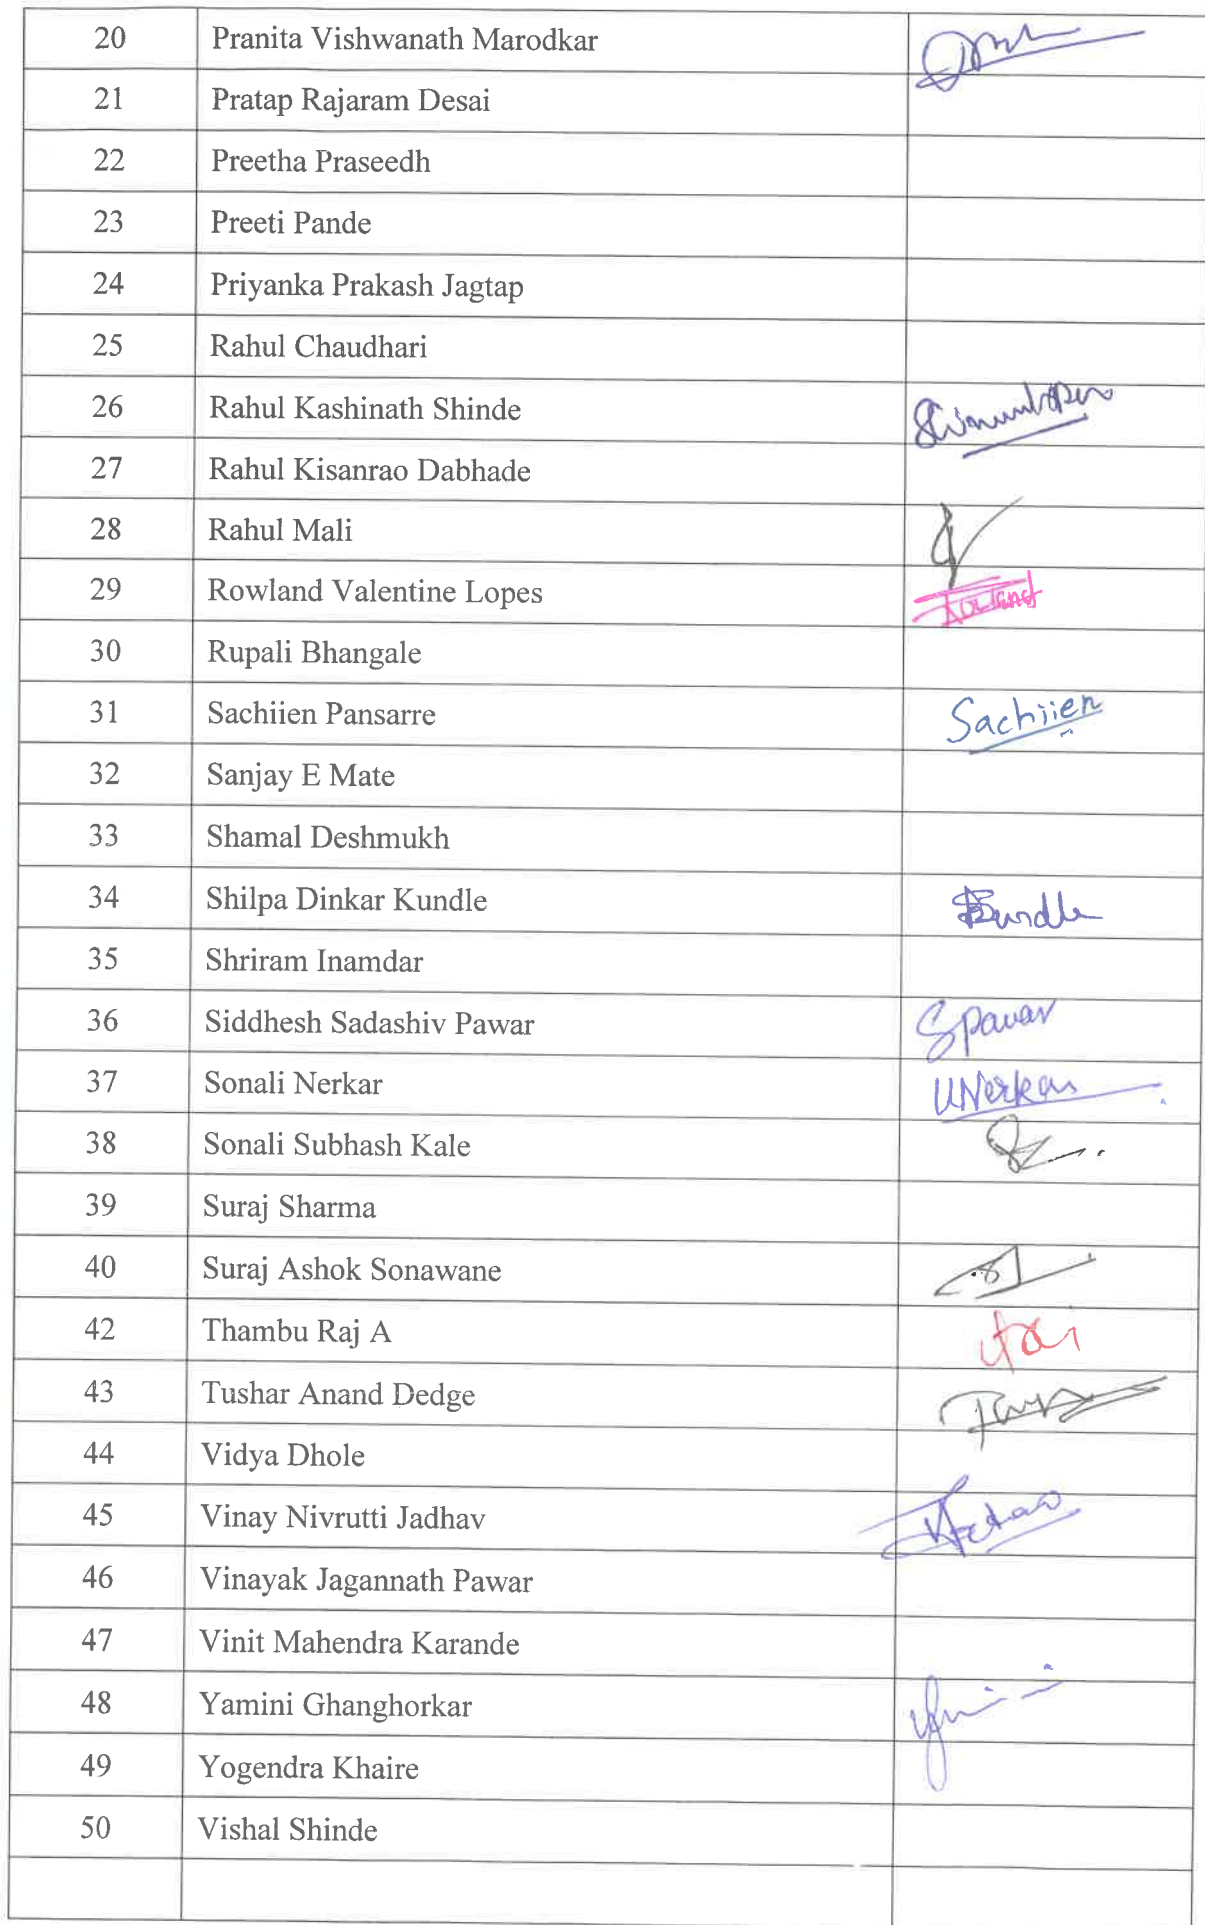 20 Pranita Vishwanath Marodkar
21 Pratap Rajaram Desai
22 Preetha Praseedh
23 Preeti Pande
24 Priyanka Prakash Jagtap
25 Rahul Chaudhari
26 Rahul Kashinath Shinde
27 Rahul Kisanrao Dabhade
28 Rahul Mali
29 Rowland Valentine Lopes Rowland
30 Rupali Bhangale
31 Sachiien Pansarre Sachiien
32 Sanjay E Mate
33 Shamal Deshmukh
34 Shilpa Dinkar Kundle
35 Shriram Inamdar
36 Siddhesh Sadashiv Pawar SPawar
37 Sonali Nerkar UNerkar
38 Sonali Subhash Kale
39 Suraj Sharma
40 Suraj Ashok Sonawane
42 Thambu Raj A
43 Tushar Anand Dedge
44 Vidya Dhole
45 Vinay Nivrutti Jadhav
46 Vinayak Jagannath Pawar
47 Vinit Mahendra Karande
48 Yamini Ghanghorkar
49 Yogendra Khaire
50 Vishal Shinde